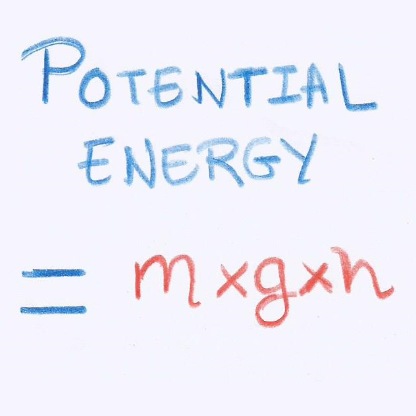 POTENTIAL
ENERGY
= m×g×h